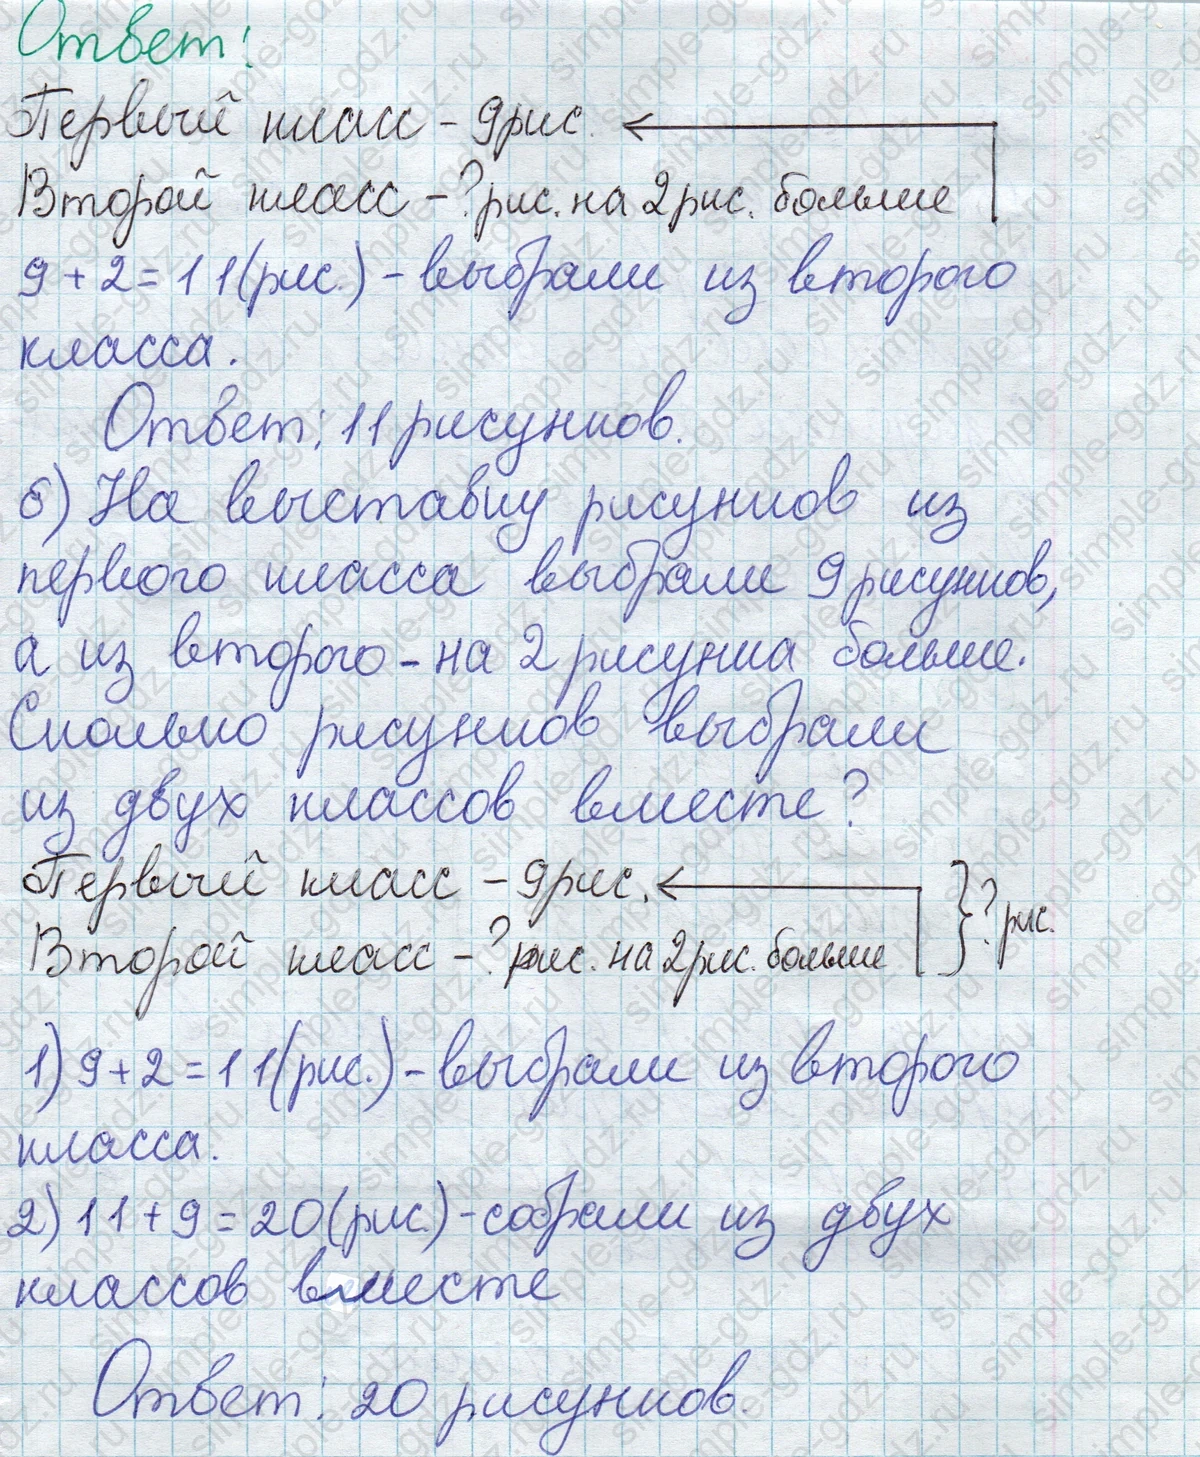 Ответ:
Первый класс - 9 рис.
Второй класс - ? рис. на 2 рис. больше
9 + 2 = 11 (рис.) - выбрали из второго
класса.
Ответ: 11 рисунков.
б) На выставку рисунков из
первого класса выбрали 9 рисунков,
а из второго - на 2 рисунка больше.
Сколько рисунков выбрали
из двух классов вместе?
Первый класс - 9 рис.
Второй класс - ? рис. на 2 рис. больше
? рис.
1) 9 + 2 = 11 (рис.) - выбрали из второго
класса.
2) 11 + 9 = 20 (рис.) - собрали из двух
классов вместе
Ответ: 20 рисунков.
simple-gdz.ru